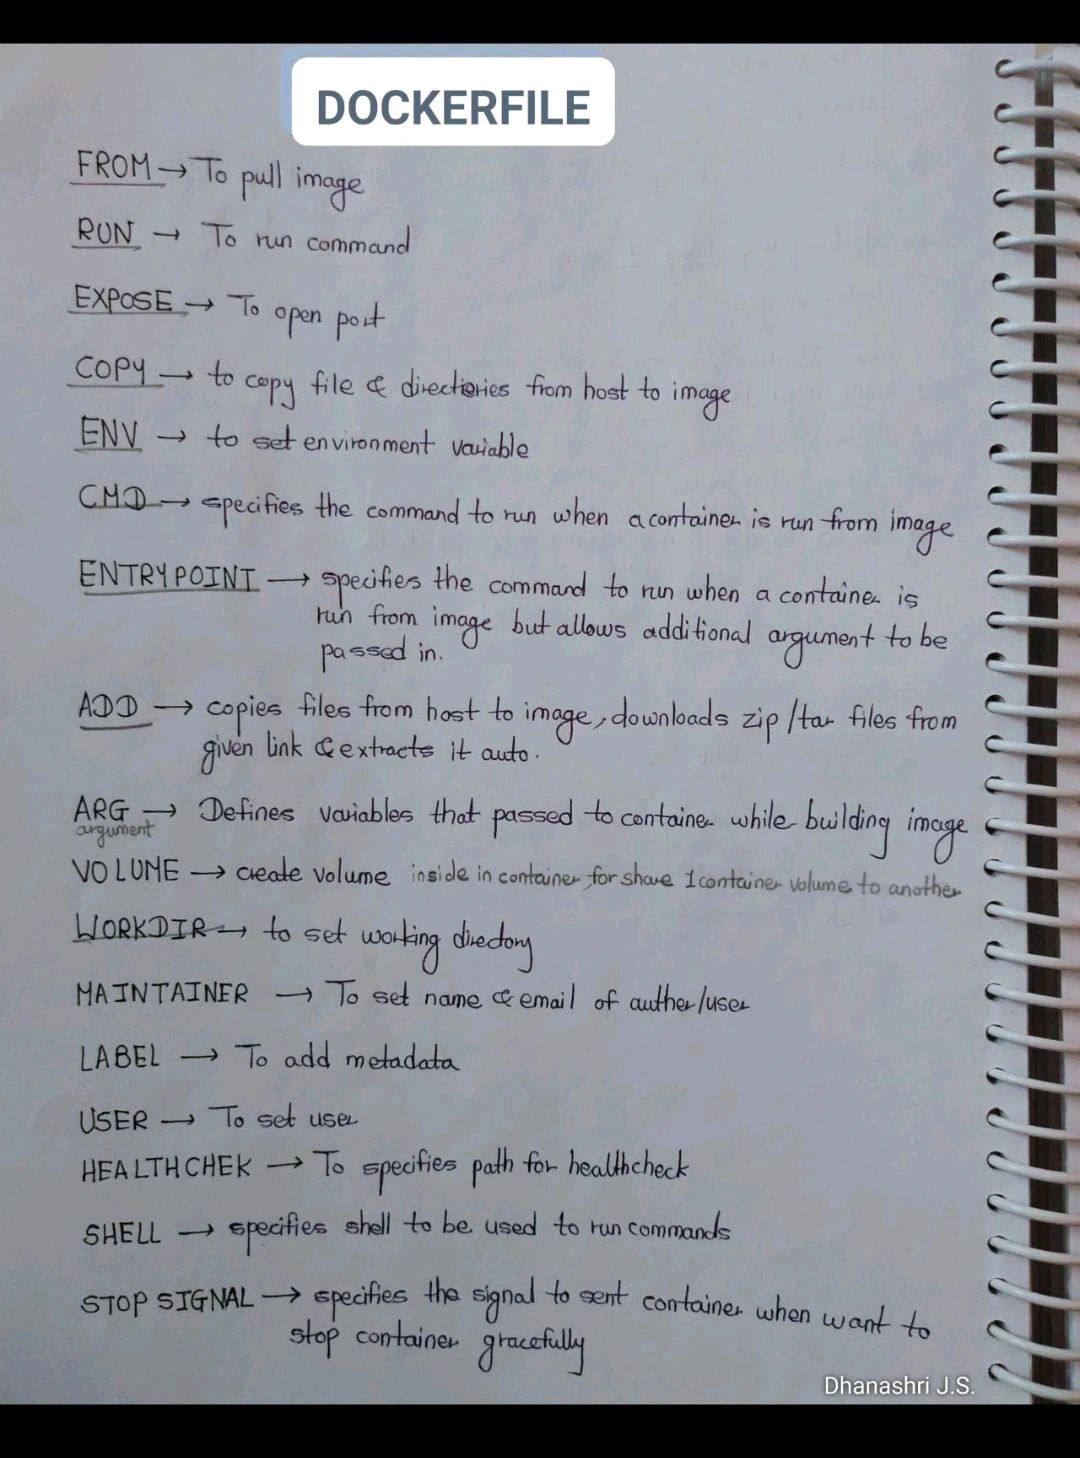 DOCKERFILE
FROM → To pull image
RUN → To run command
EXPOSE → To open port
COPY → to copy file & directiories from host to image
ENV → to set environment variable
CMD → specifies the command to run when a container is run from image
ENTRYPOINT → specifies the command to run when a container is
run from image but allows additional argument to be
passed in.
ADD → copies files from host to image, downloads zip/tar files from
given link & extracts it auto.
ARG → Defines variables that passed to container while building image
argument
VOLUME → create volume inside in container for share 1 container volume to another
WORKDIR → to set working directory
MAINTAINER → To set name & email of auther/user
LABEL → To add metadata
USER → To set user
HEALTHCHEK → To specifies path for healthcheck
SHELL → specifies shell to be used to run commands
STOP SIGNAL → specifies the signal to sent container when want to
stop container gracefully
Dhanashri J.S.